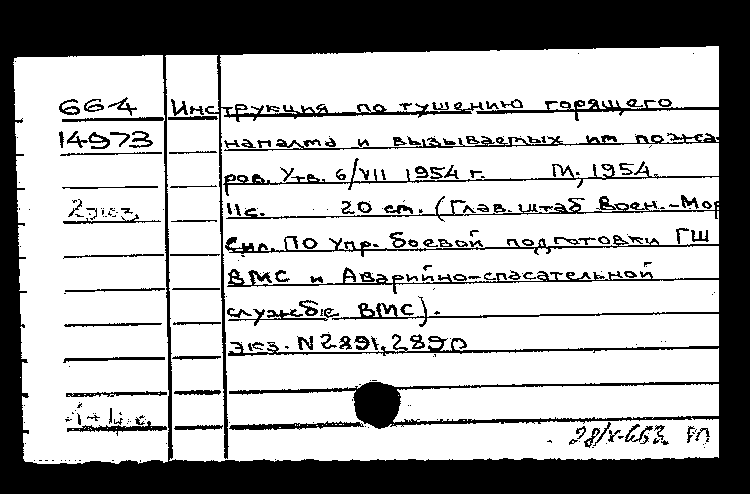 664 Инструкция по тушению горящего
14973 напалма и вызываемых им пожа-
ров. Утв. 6/VII 1954 г. М., 1954.
2 экз. 11с. 20 см. (Глав. штаб Воен.-Мор
Сил. ПО Упр. боевой подготовки ГШ
ВМС и Аварийно-спасательной
службе ВМС).
экз. N 2891, 2890
28/X-65г.